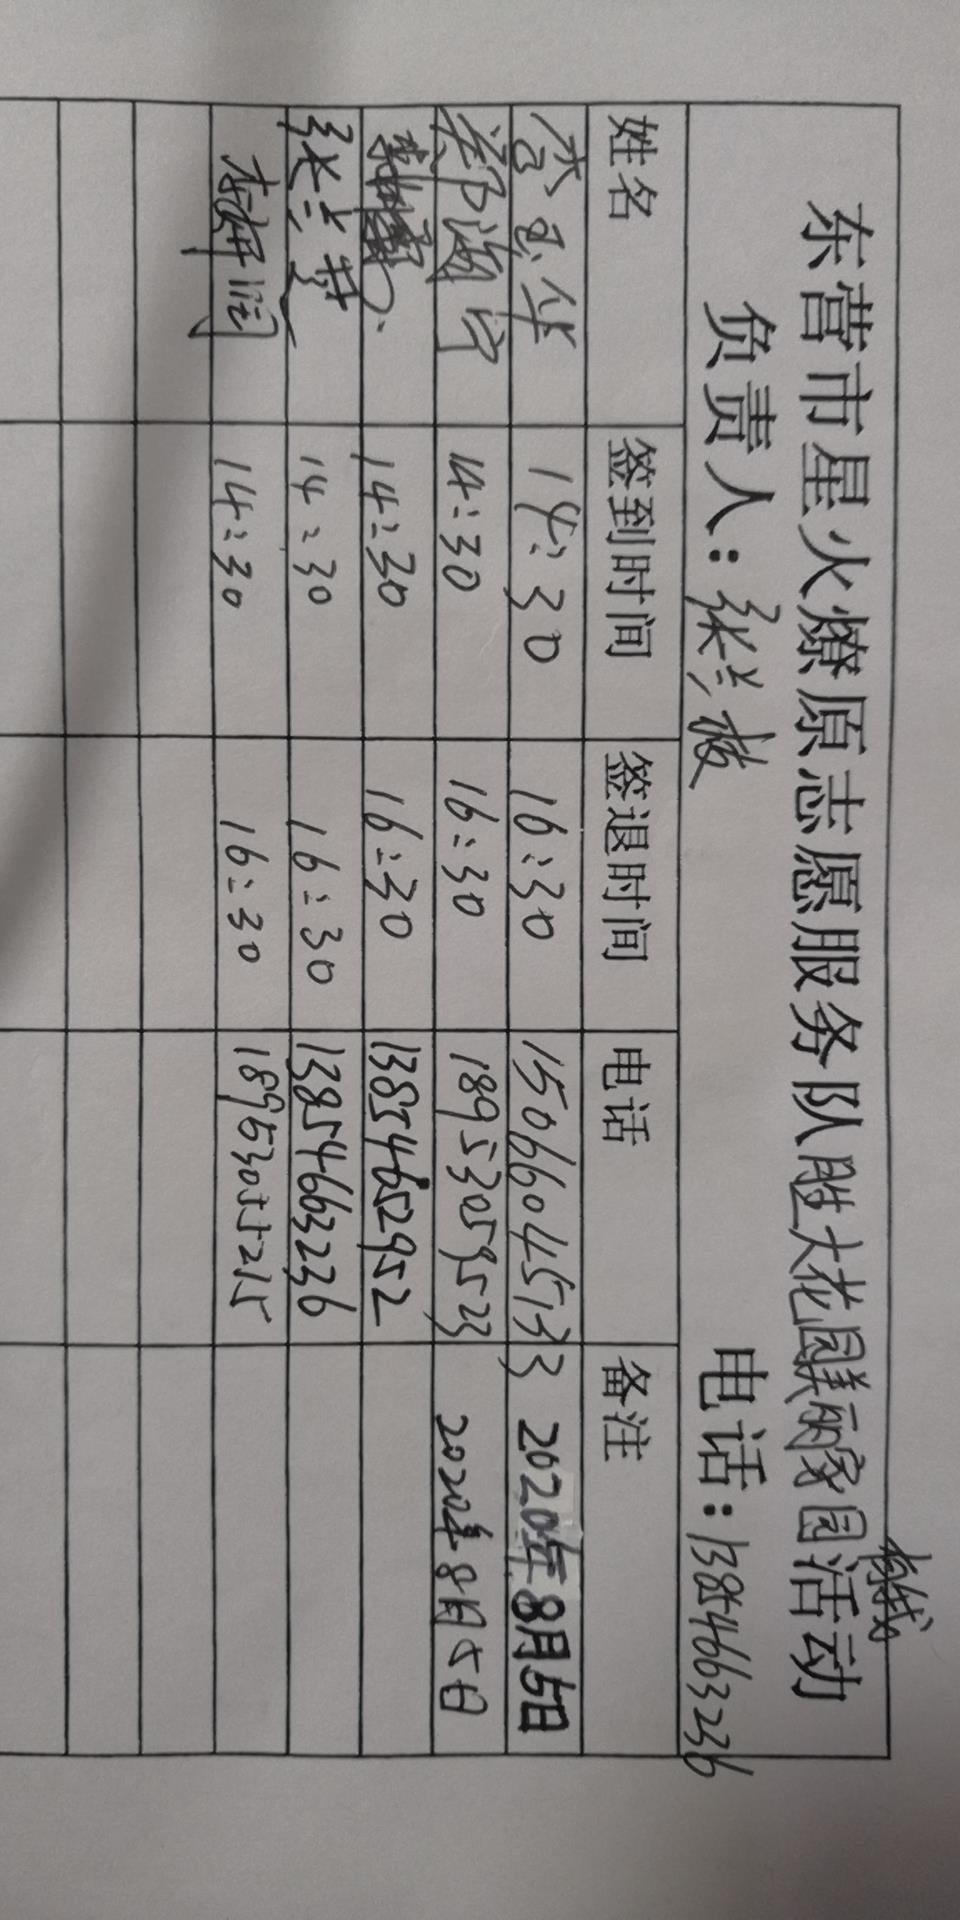 东营市星火燎原志愿服务队胜大花园美丽家园活动
负责人：张兰枝 电话：13854663236
姓名 签到时间 签退时间 电话 备注
李玉华 14:30 16:30 15066045133 2020年8月5日
郑海 14:30 16:30 18953059523 2020年8月5日
14:30 16:30 13854652952
张兰芬 14:30 16:30 13854663236
李妍润 14:30 16:30 18953055215